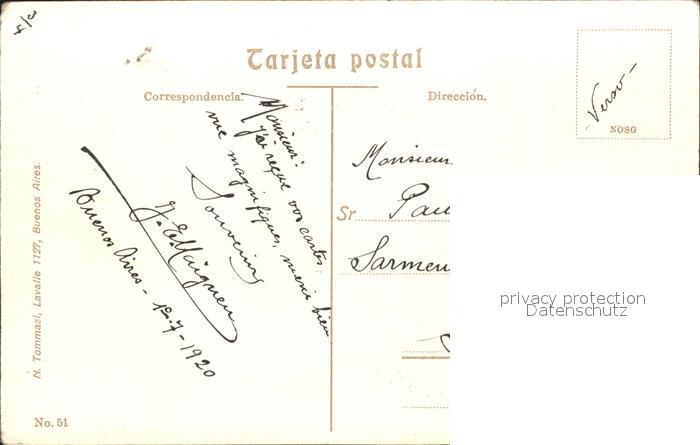 4/3
Tarjeta postal
Correspondencia.
Dirección.
Verso -
NOSG
Monsieur:
J'ai reçue vos cartes,
vue magnifiques, merci bien
Souvenirs
J. E. Maignen
Buenos Aires - 12-7-1920
Monsieur
Sr Pau
Sarmen
privacy protection
Datenschutz
N. Tommasi, Lavalle 1127, Buenos Aires.
No. 51